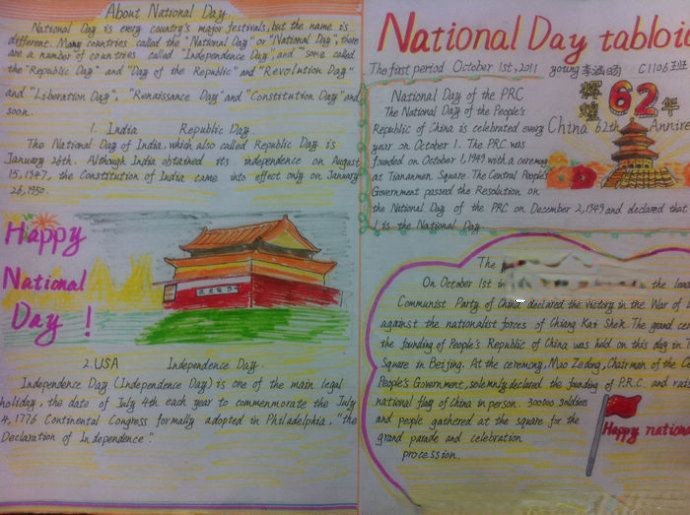 About National Day.
National Day is every country's major festivals, but the name is
different. Many countries called the "National Day" or "National Day", there
are a number of countries called "Independence Day", and "some called
the "Republic Day" and "Day of the Republic" and "Revolution Day"
and "Liberation Day", "Renaissance Day" and "Constitution Day" and
soon.
1. India Republic Day.
The National Day of India, which also called Republic Day is
January 26th. Although India obtained its independence on August
15, 1947, the Constitution of India came into effect only on January
26, 1950.
Happy
National
Day !
2. USA Independence Day
Independence Day (Independence Day) is one of the main legal
holiday, the date of July 4th each year to commemorate the July
4, 1776 Continental Congress formally adopted in Philadelphia, "the
Declaration of Independence".
National Day tabloid
The first period October 1st, 2011 young C1106班
National Day of the PRC
The National Day of the People's
Republic of China is celebrated every
year on October 1. The PRC was
founded on October 1, 1949 with a ceremony
at Tiananmen Square. The Central People's
Government passed the Resolution on
the National Day of the PRC on December 2, 1949 and declared that
1 is the National Day
辉煌62年
China 62th Annive
The
On October 1st in the
Communist Party of China declared the victory in the War of
against the nationalist forces of Chiang Kai Shek. The grand
the founding of People's Republic of China was held on this day in
Square in Beijing. At the ceremony, Mao Zedong, Chairman of the
People's Government, solemnly declared the founding of P.R.C. and
national flag of China in person. 300000 soldies
and people gathered at the square for the
grand parade and celebration
procession.
Happy nation